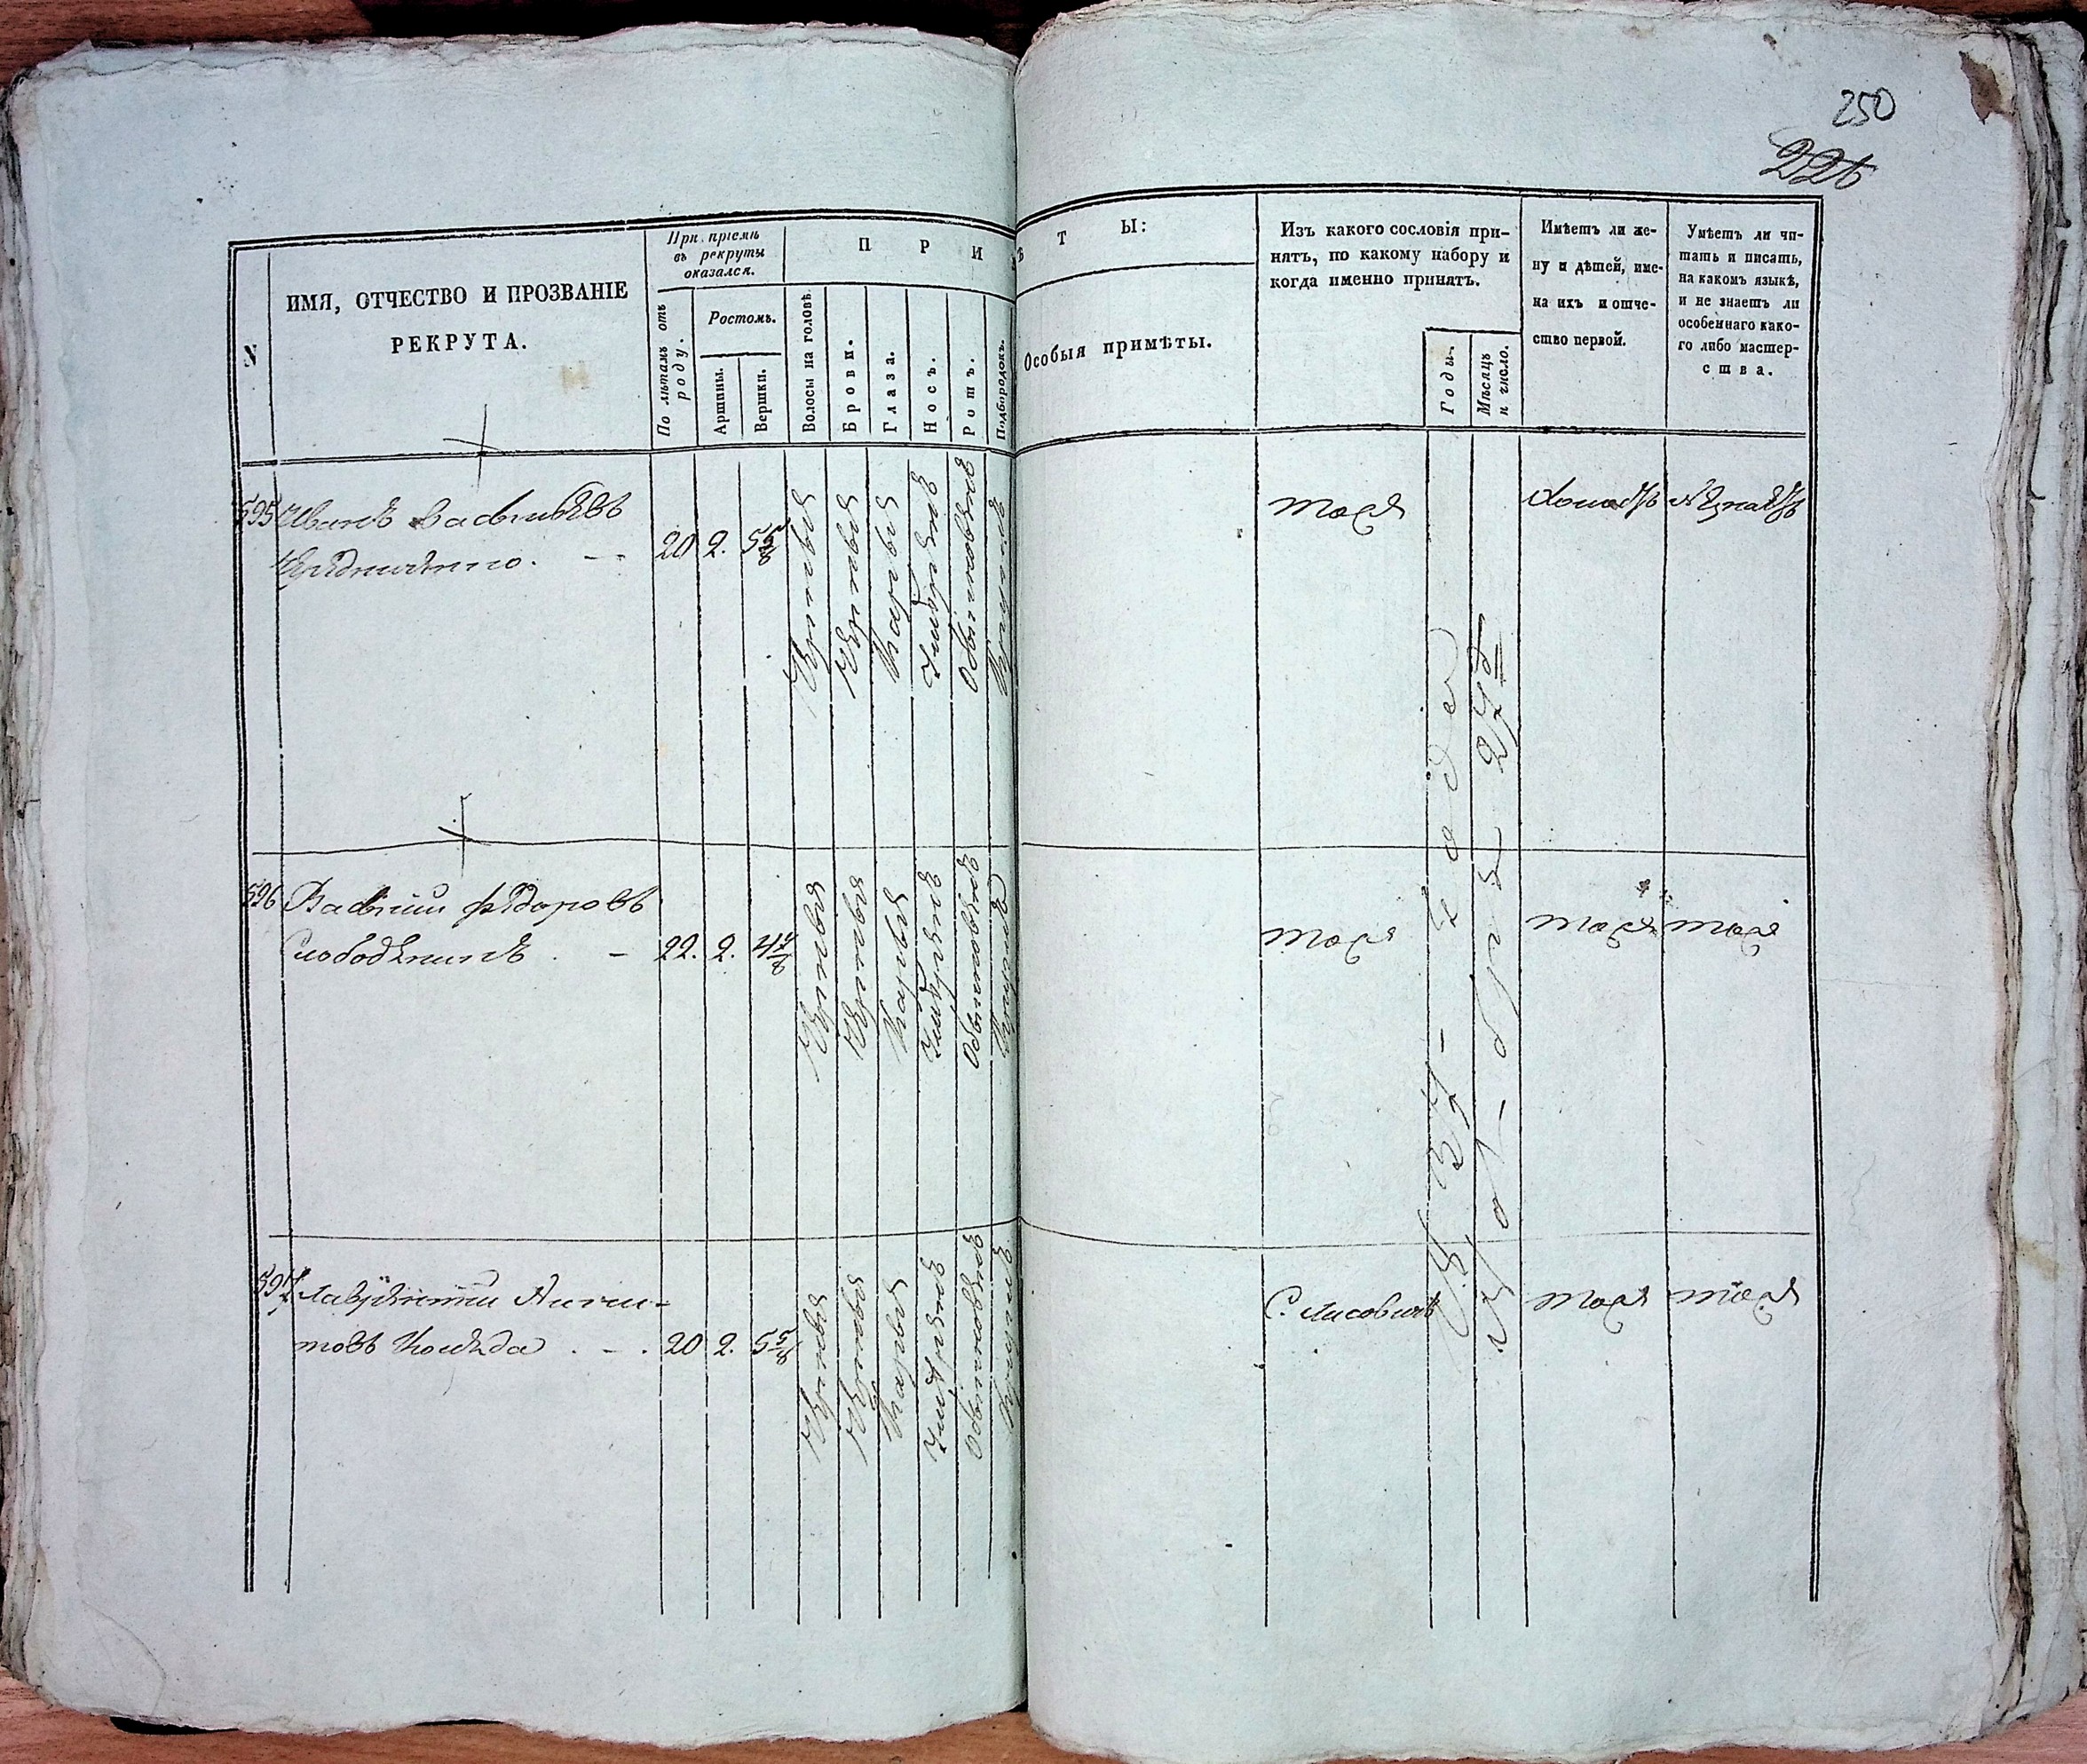 250
226
N
ИМЯ, ОТЧЕСТВО И ПРОЗВАНІЕ
РЕКРУТА.
При пріемѣ
въ рекруты
оказался.
По лѣтамъ отъ
роду.
Ростомъ.
Аршины.
Вершки.
П Р И
Волосы на головѣ.
Брови.
Глаза.
Носъ.
Ротъ.
Подбородокъ.
ѣ Т Ы:
Особыя примѣты.
Изъ какого сословія при-
нятъ, по какому набору и
когда именно принятъ.
Годы.
Мѣсяцъ
и число.
Имѣетъ ли же-
ну и дѣтей, име-
на ихъ и отче-
ство первой.
Умѣетъ ли чи-
тать и писать,
на какомъ языкѣ,
и не знаетъ ли
особеннаго како-
го либо мастер-
ства.
595 Иванъ Васильевъ
20 2. 5 5/8
Черныя
Черныя
Карыя
Умѣренъ
Обыкновенъ
Круглъ
тожъ
Холостъ
Незнаетъ
596 Василій Федоровъ
Слободеникъ
22. 2. 4 4/8
Черныя
Черныя
Карыя
Умѣренъ
Обыкновенъ
Круглъ
тожъ
тожъ
тожъ
597 Лаврентій Аники-
товъ
20 2. 5 5/8
Черныя
Черныя
Карыя
Умѣренъ
Обыкновенъ
Круглъ
тожъ
тожъ
года
27